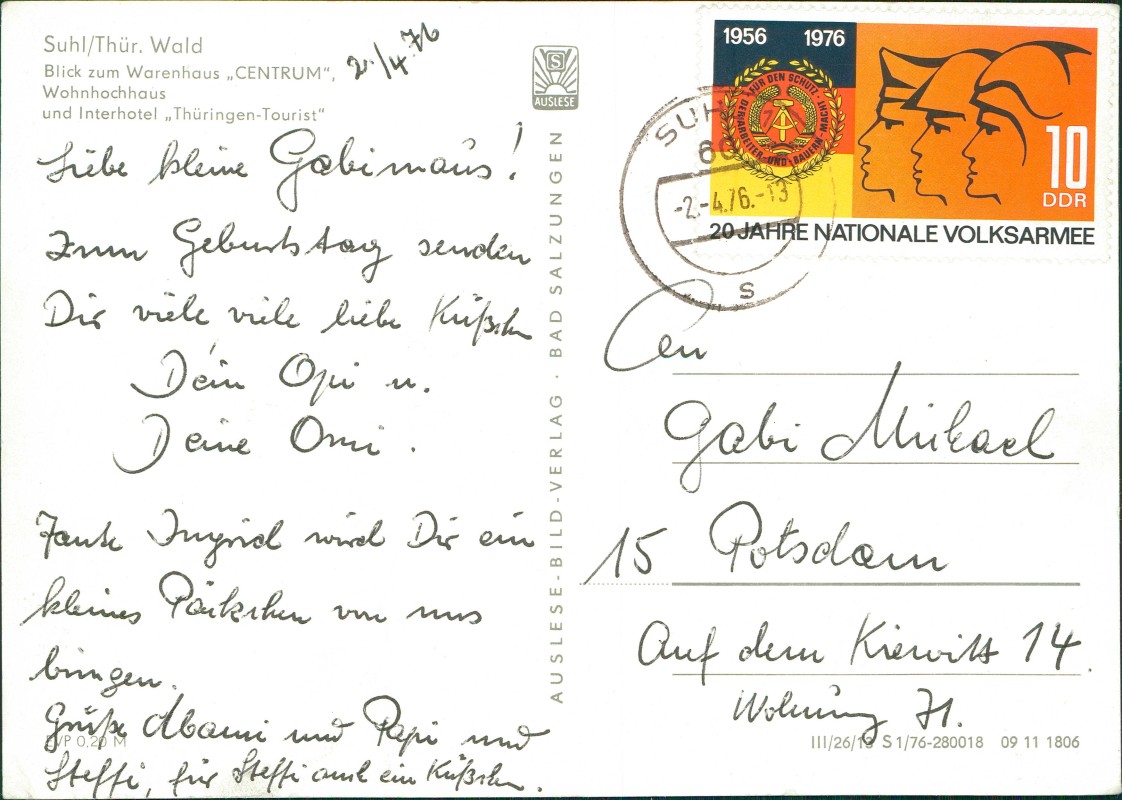 Suhl/Thür. Wald
Blick zum Warenhaus „CENTRUM",
Wohnhochhaus
und Interhotel „Thüringen-Tourist"
2./4.76
S
AUSLESE
Liebe kleine Gabimaus!
Zum Geburtstag senden
Dir viele viele liebe Küßchen
Dein Opi u.
Deine Omi.
Tante Ingrid wird Dir ein
kleines Päckchen von uns
bringen.
Grüße Mami und Papi und
Steffi, für Steffi auch ein Küßchen.
EVP 0,20 M
AUSLESE-BILD-VERLAG · BAD SALZUNGEN
1956 1976
FÜR DEN SCHUTZ DER ARBEITER-UND-BAUERN-MACHT
10
DDR
20 JAHRE NATIONALE VOLKSARMEE
SUHL
60
-2.-4.76.-13
s
An
Gabi Mikael
15 Potsdam
Auf dem Kiewitt 14.
Wohnung 71.
III/26/13 S 1/76-280018 09 11 1806